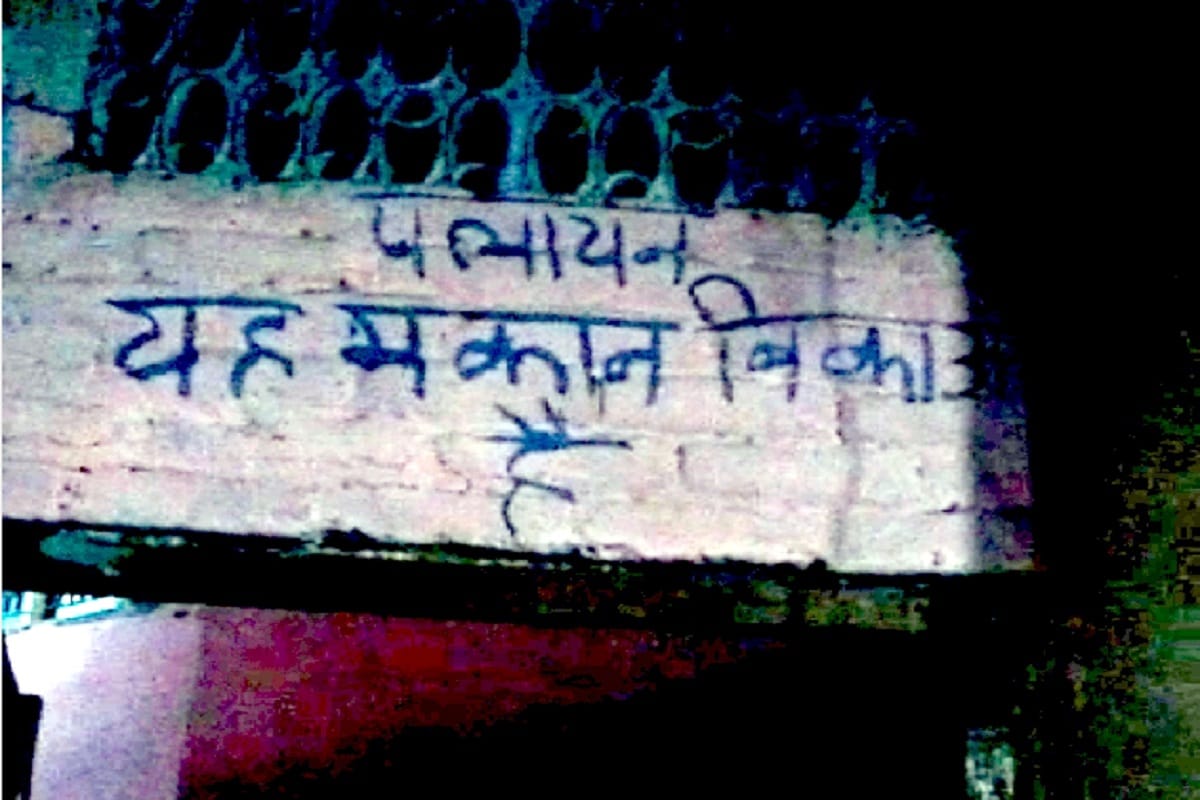 पलायन
यह मकान बिकाऊ
है